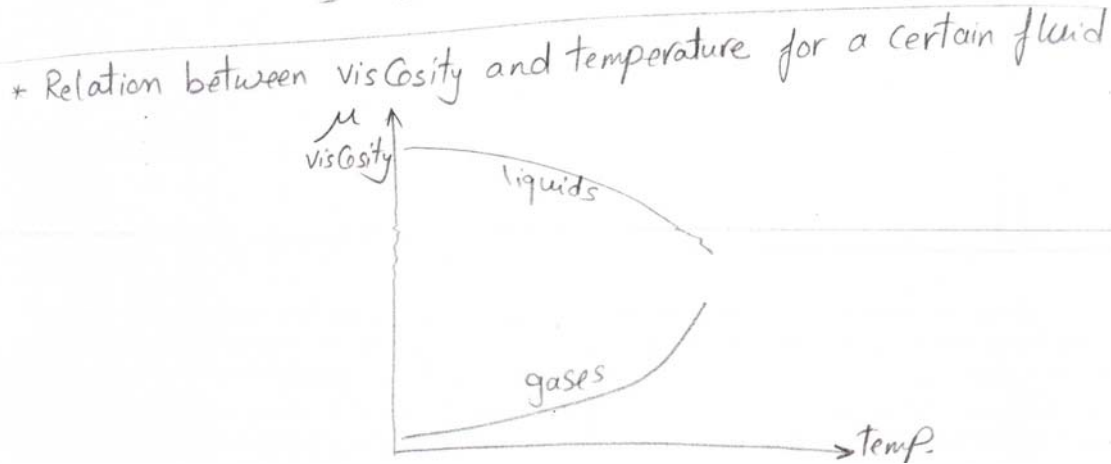 * Relation between viscosity and temperature for a certain fluid
μ
viscosity
liquids
gases
temp.